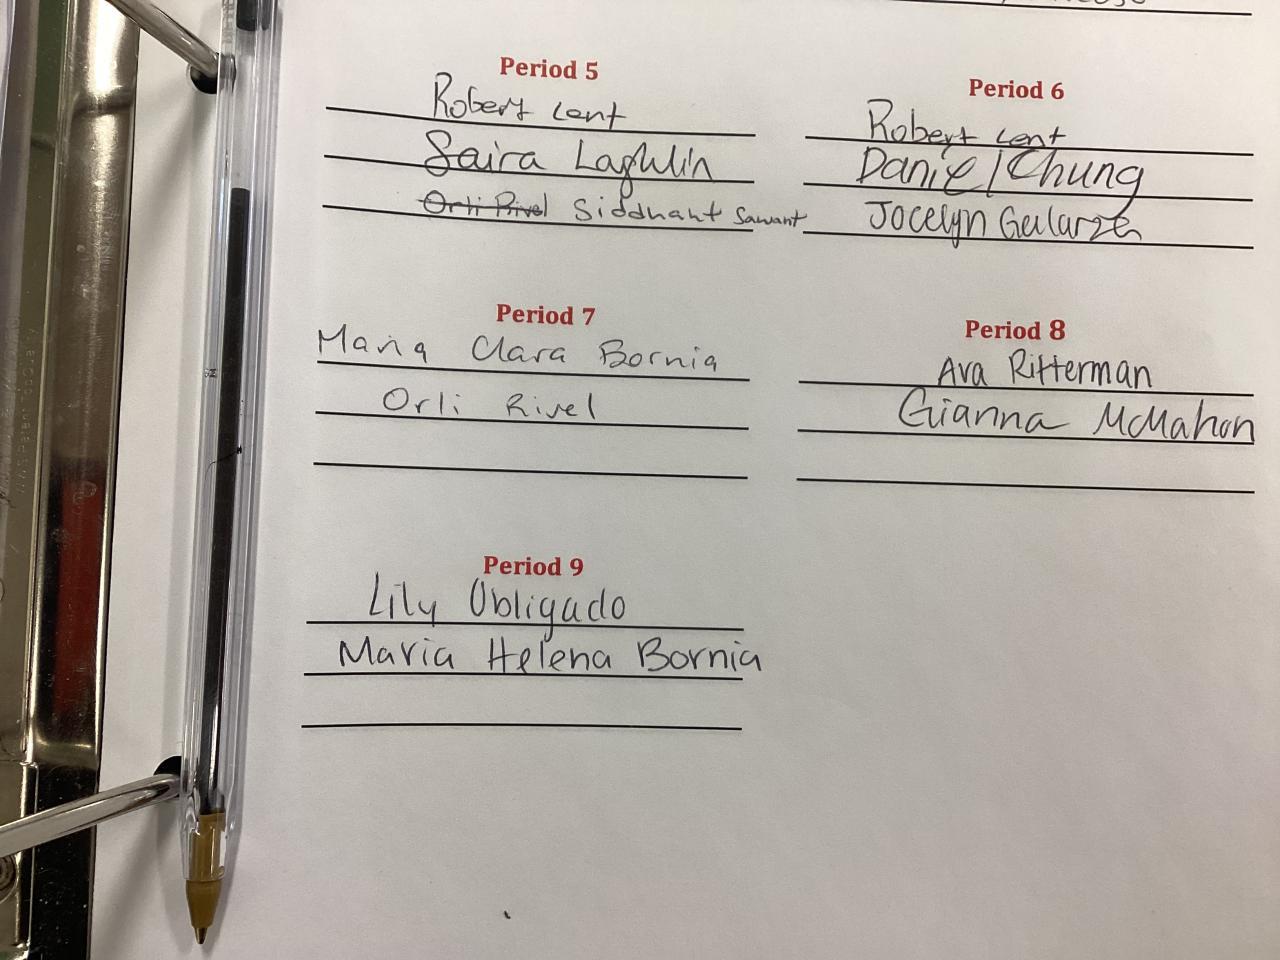 Period 5
Robert Lent
Saira Laghlin
Orli Rivel Siddhant Sawant
Period 6
Robert Lent
Daniel Chung
Jocelyn Gularza
Period 7
Maria Clara Bornia
Orli Rivel
Period 8
Ava Ritterman
Gianna McMahon
Period 9
Lily Obligado
Maria Helena Bornia